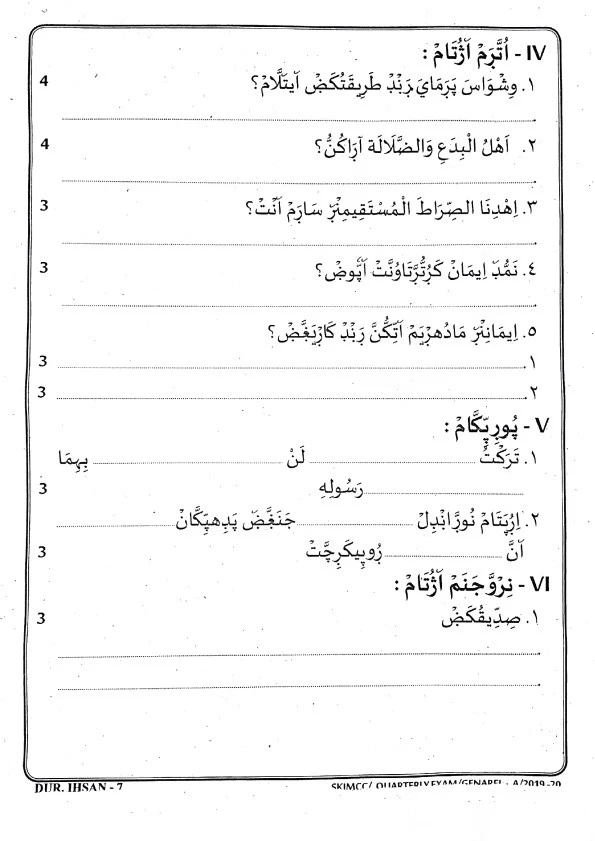 IV - اُتَّرَمْ اٰژُتَامْ :
١. وِشْوَاسَ پَرَمَايَ رَنْڊْ طَرِيقَتُكَضْ اٰيتَلَّامْ؟ 4
٢. اَهْلُ الْبِدَعِ وَالضَّلَالَة اٰرَاكُنُّ؟ 4
٣. اِهْدِنَا الصِّرَاطَ الْمُسْتَقِيمِنْرَ سَارَمْ اٰنْتْ؟ 3
٤. نَمُّڊَ اِيمَانْ كَرُتُّرَّتَاوُنَّتْ اٰپُّوضْ؟ 3
٥. اِيمَانِنْرَ مَادُهرْيَمْ اٰتِكُّنَّ رَنْڊْ كَارْيَغَّضْ؟
١. 3
٢. 3
V - پُورِپِّكَّامْ :
١. تَرَكْتُ لَنْ بِهِمَا
رَسُولِهِ 3
٢. اِرُپَتَامْ نُورَّانْڊِلْ جَنَغَّضَ پَڊِهپِّكَّانْ
اٰنَّ رُوپِيكَرِچَّتْ 3
VI - نِرْوَّجَنَمْ اٰژُتَامْ :
١. صِدِّيقُكَضْ 3
DUR. IHSAN - 7 SKIMCC/ QUARTERLY EXAM/GENAREL - A/2019-20